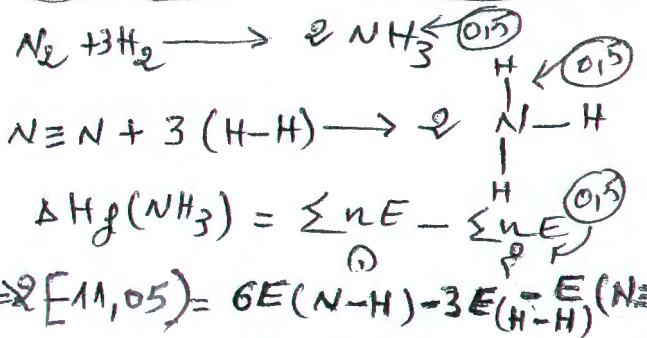 N₂ + 3H₂ ⟶ 2 NH₃ 0,5
N≡N + 3 (H–H) ⟶ 2 H–N(–H)–H 0,5
ΔHf(NH₃) = ΣnE – ΣnE 0,5
① ②
⇒ 2[-11,05) = 6E(N–H) – 3E(H–H) – E(N≡